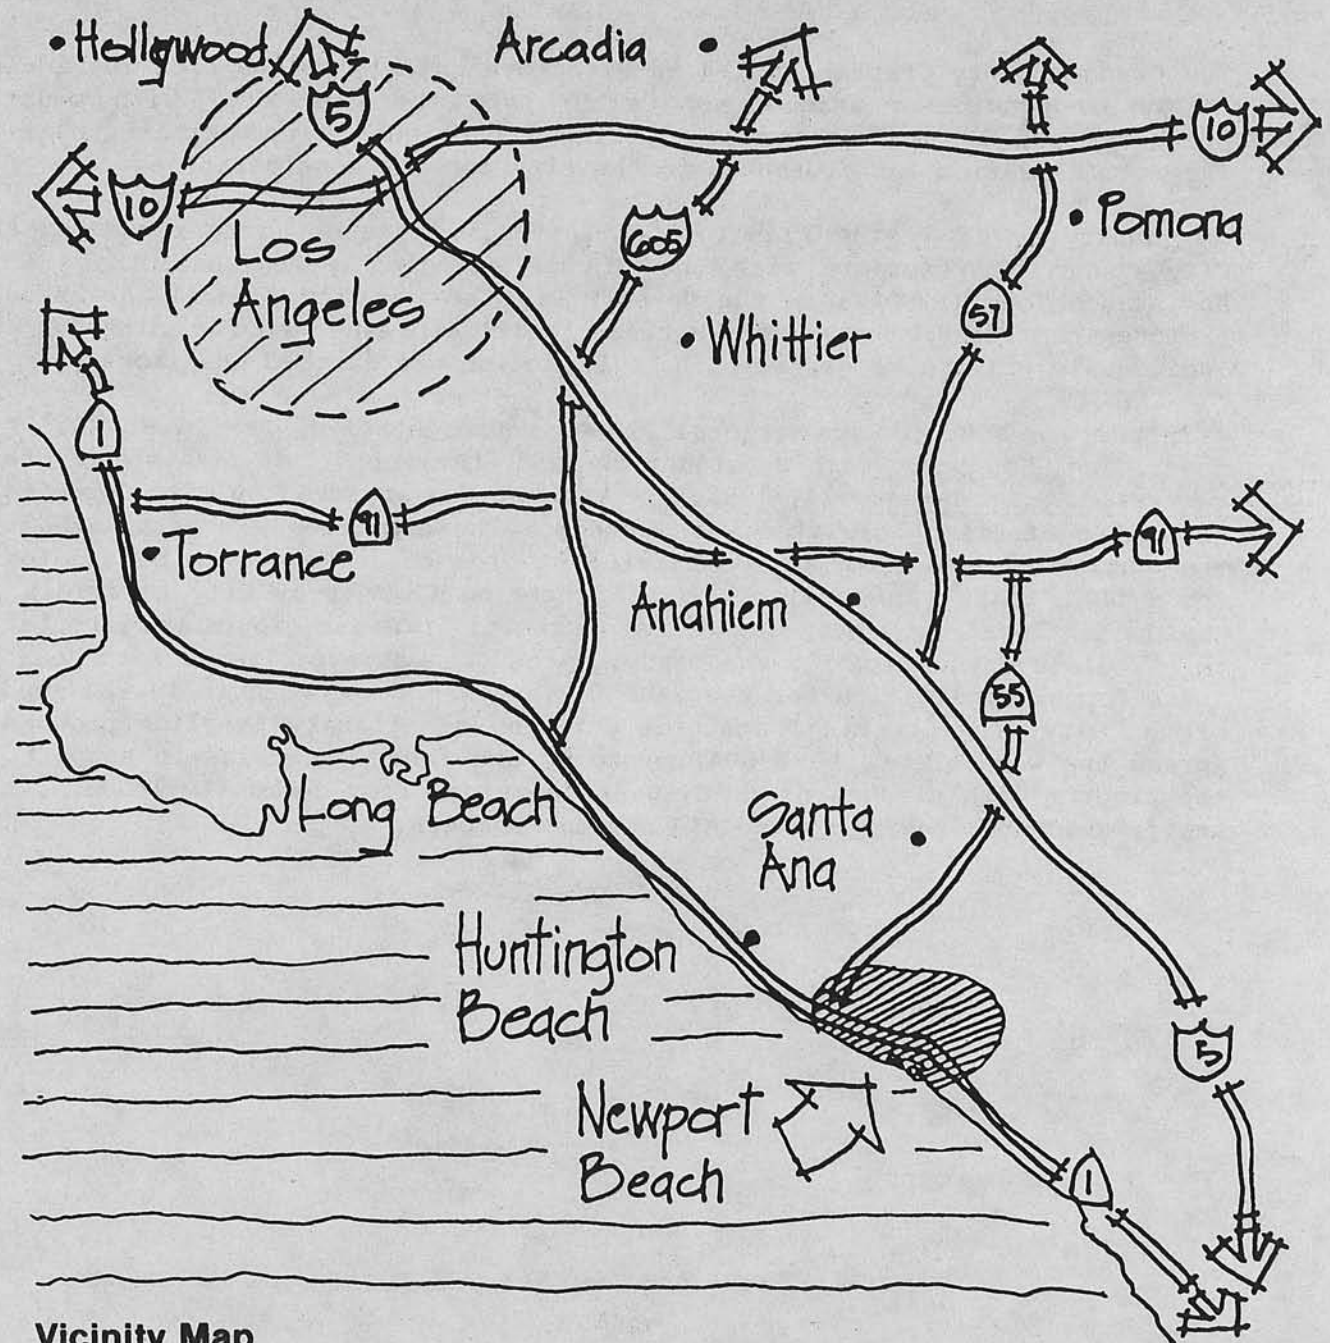 Hollywood
Arcadia
5
10
10
Los
Angeles
605
Pomona
57
Whittier
1
91
91
Torrance
Anahiem
55
Long Beach
Santa
Ana
Huntington
Beach
5
Newport
Beach
1
Vicinity Map